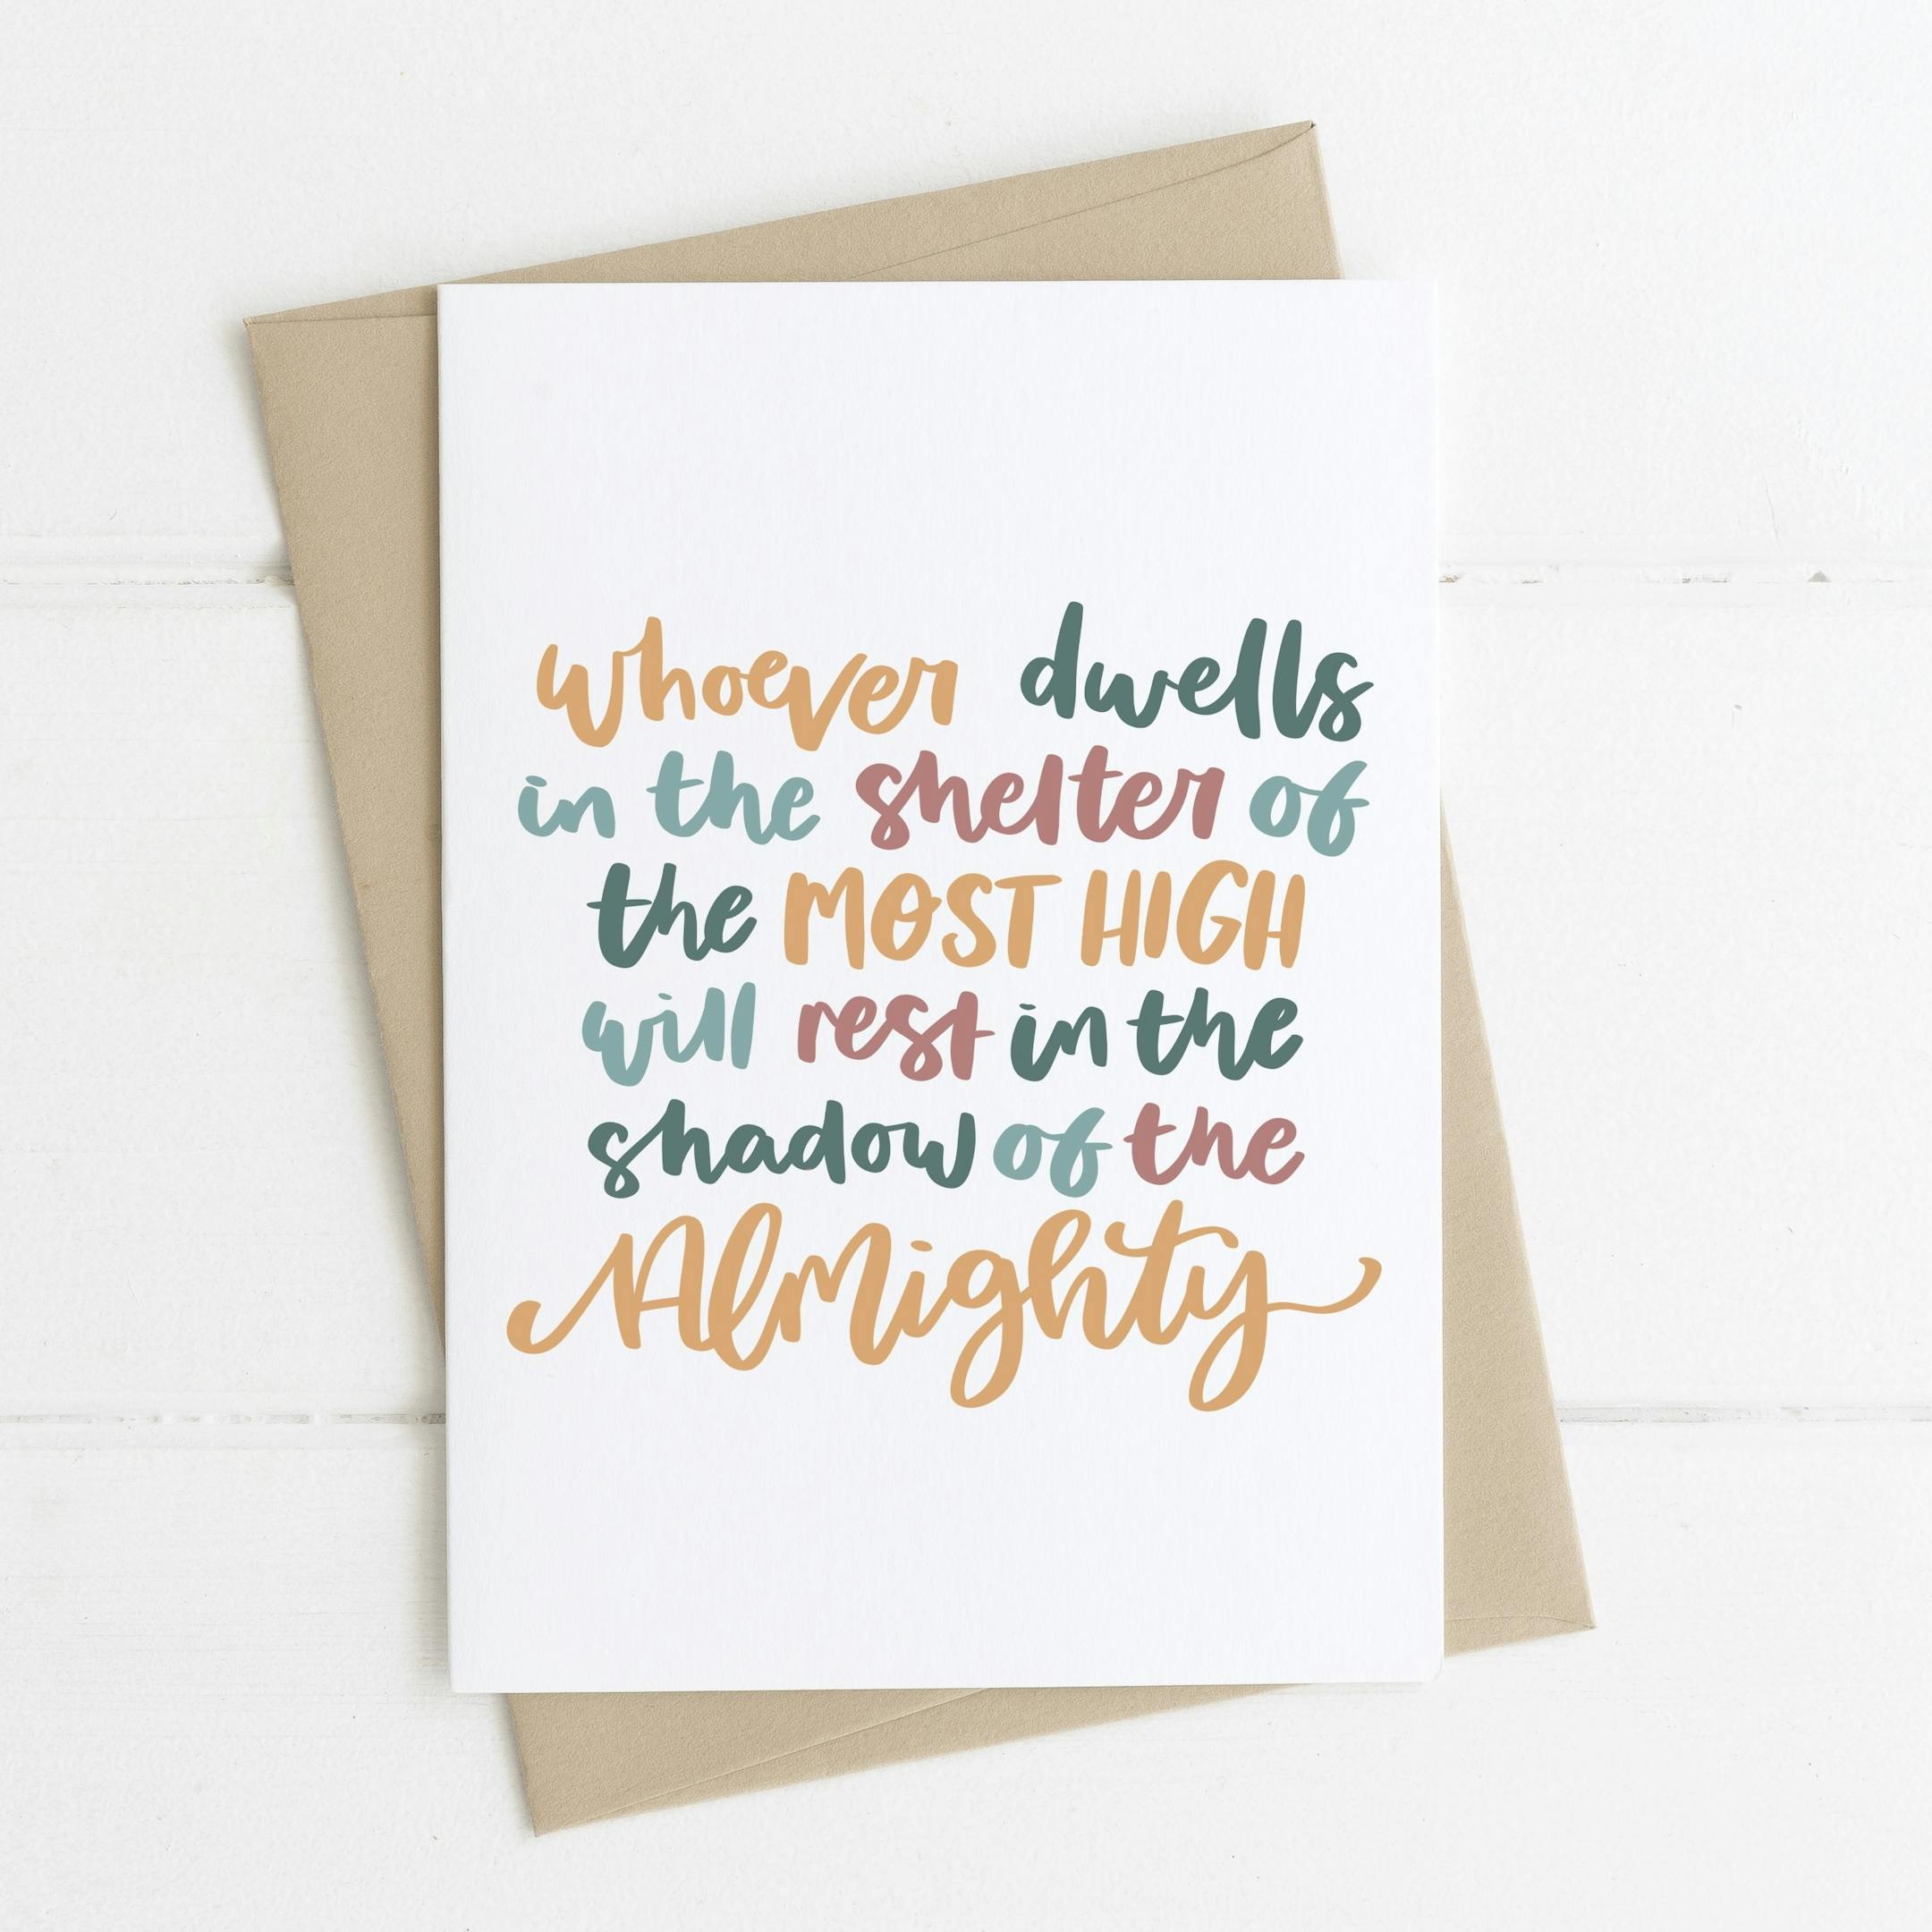 whoever dwells
in the shelter of
the MOST HIGH
will rest in the
shadow of the
Almighty